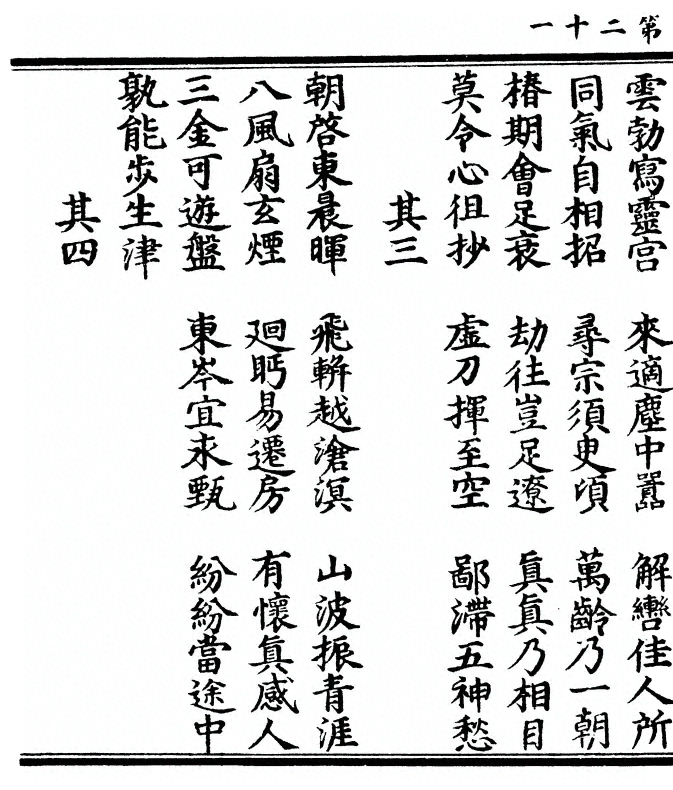 第二十一
雲勃寫靈宫　來適塵中囂　解轡佳人所
同氣自相招　尋宗須臾頃　萬齡乃一朝
椿期會足衰　劫往豈足遼　眞眞乃相目
莫令心徂抄　虛刀揮至空　鄙滯五神愁
其三
朝啓東晨暉　飛輧越滄溟　山波振青涯
八風扇玄煙　廻眄易遷房　有懷眞感人
三金可遊盤　東岑宜永甄　紛紛當途中
孰能步生津
其四